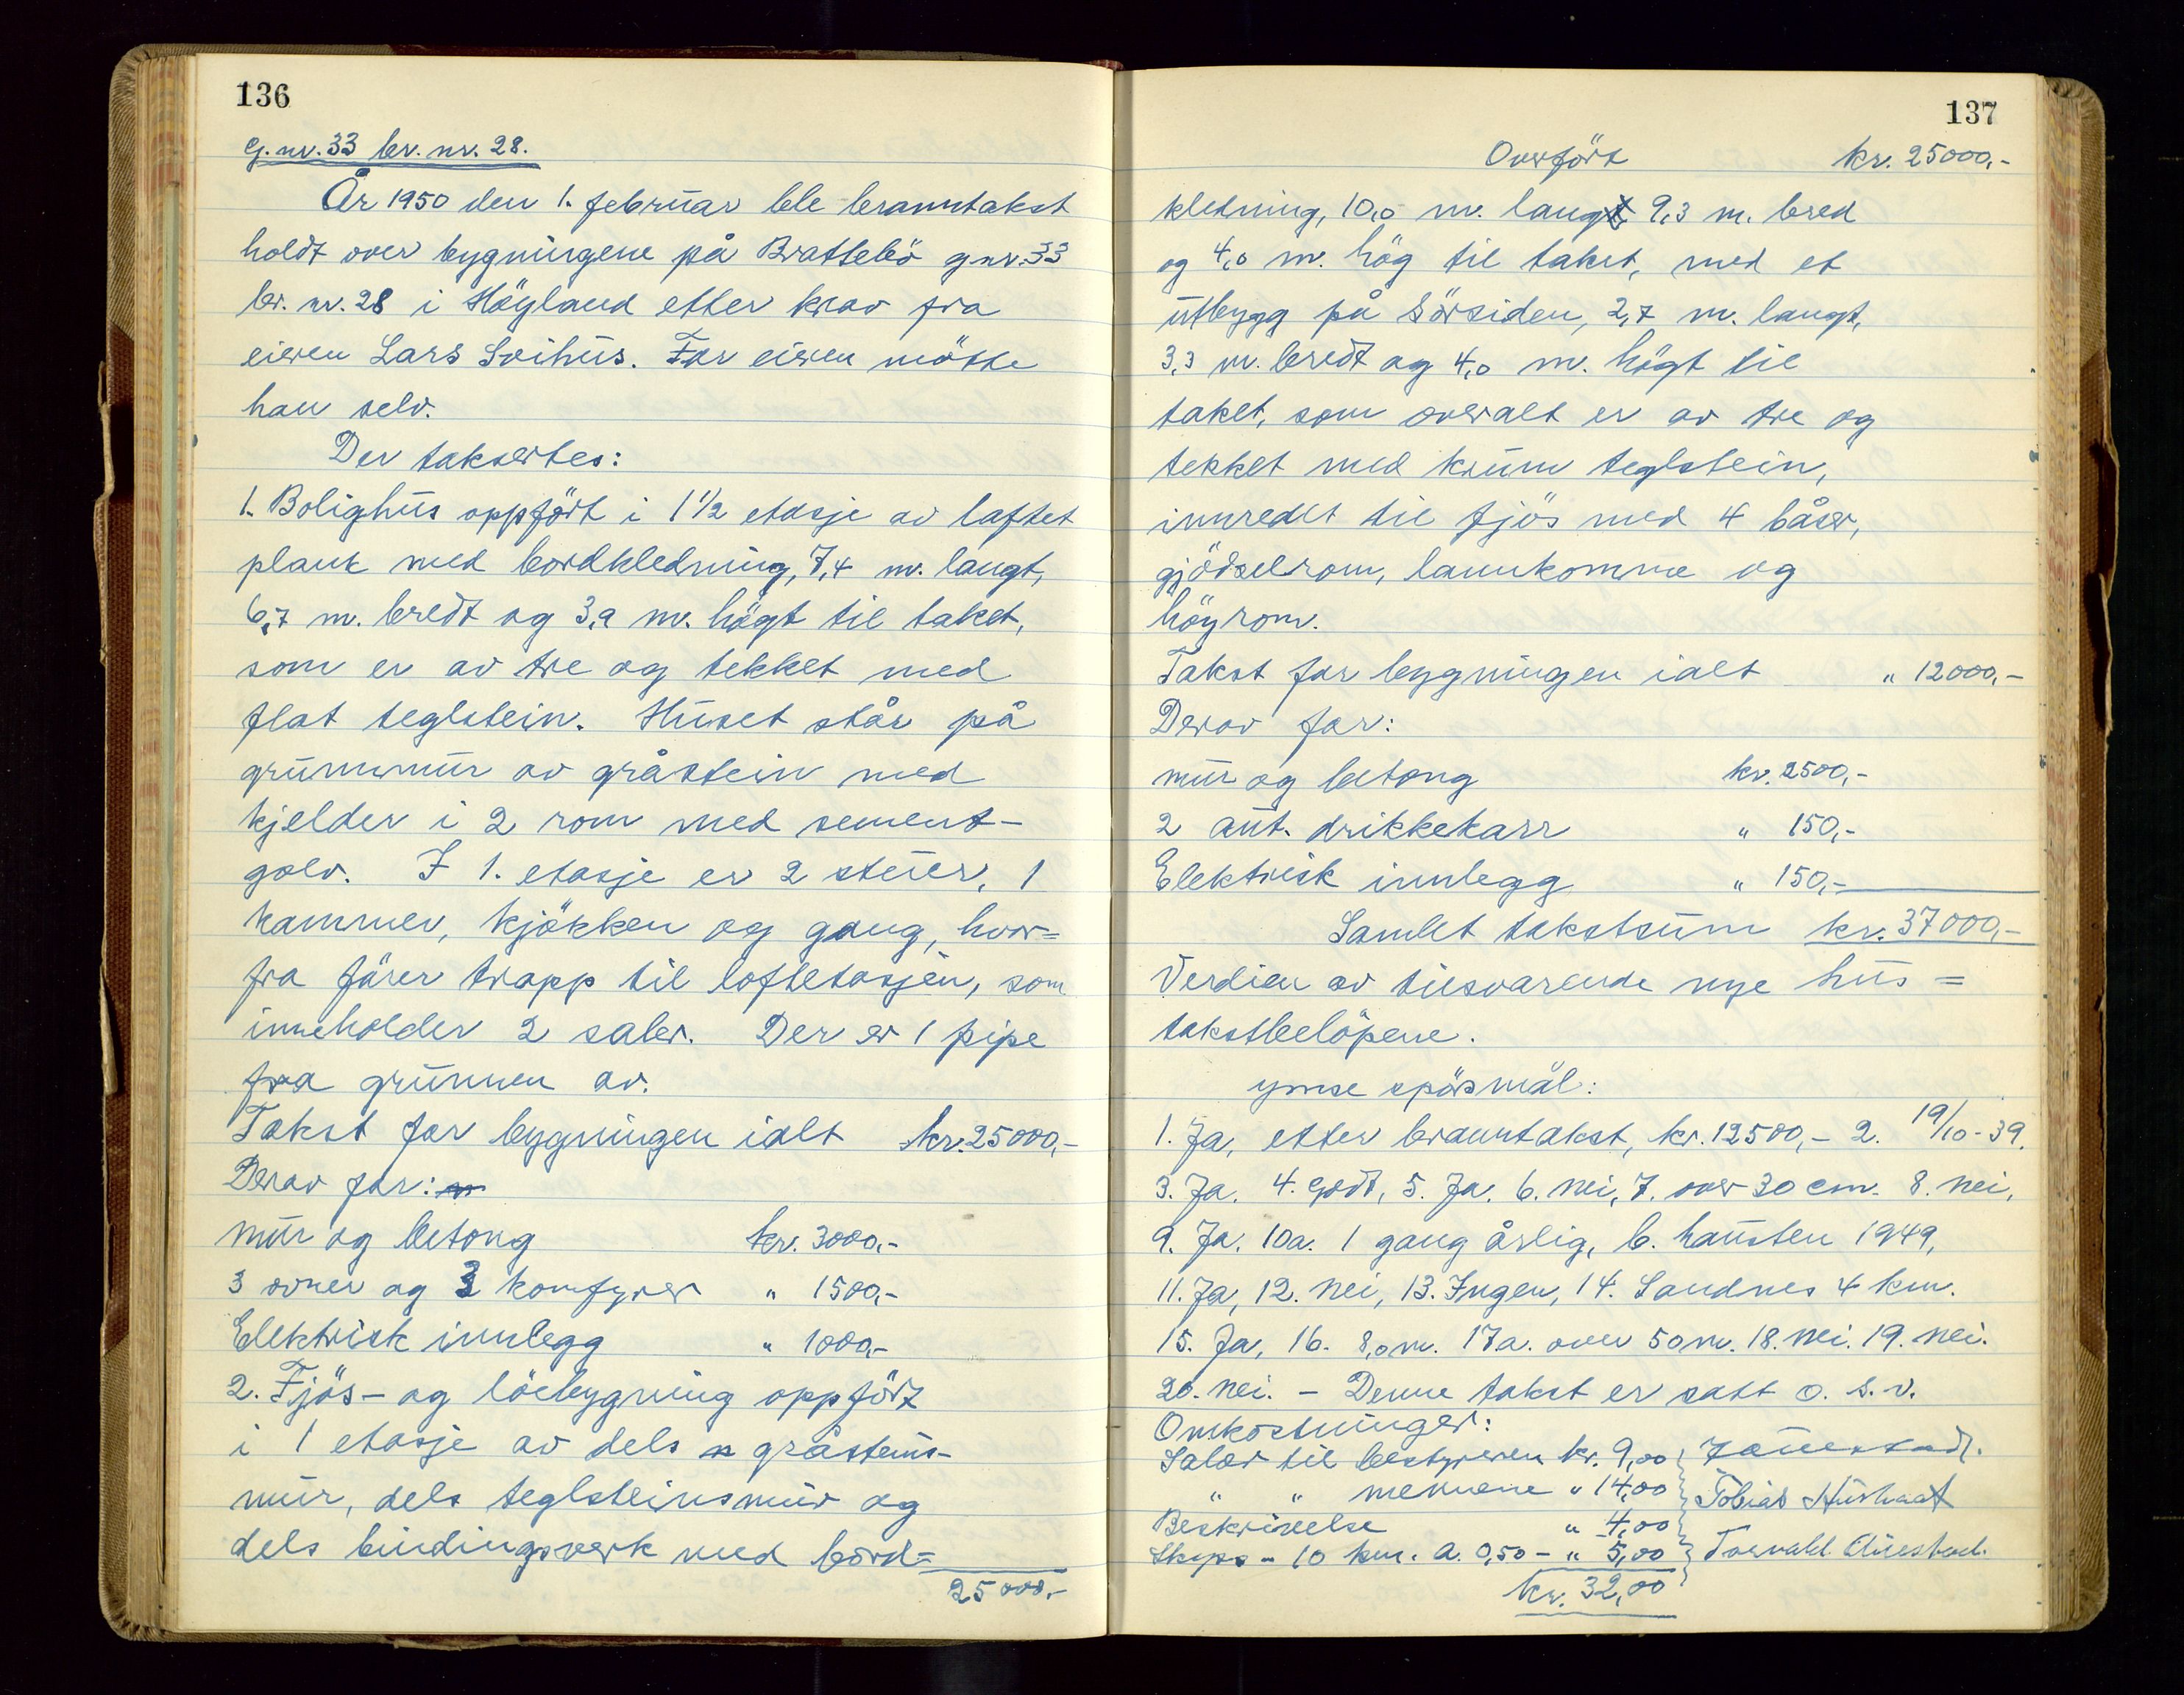 136
G. nr. 33 br. nr. 28.
År 1950 den 1. februar ble branntakst
holdt over bygningene på Brattebö gnr. 33
br. nr. 28 i Höyland etter krav fra
eieren Lars Svihus. For eieren mötte
han selv.
Der taksertes:
1. Bolighus oppfört i 1 1/2 etasje av laftet
plank med bordkledning, 7,4 m. langt,
6,7 m. bredt og 3,9 m. högt til taket,
som er av tre og tekket med
flat teglstein. Huset står på
grunnmur av gråstein med
kjelder i 2 rom med sement-
golv. I 1. etasje er 2 stuer, 1
kammer, kjökken og gang, hvor=
fra förer trapp til loftetasjen, som
inneholder 2 saler. Der er 1 pipe
fra grunnen av.
Takst for bygningen ialt kr. 25000,-
Derav for:
mur og betong kr. 3000,-
3 ovner og 3 komfyrer " 1500,-
Elektrisk innlegg " 1000,-
2. Fjös- og löebygning oppfört
i 1 etasje av dels gråsteins-
mur, dels teglsteinsmur og
dels bindingsverk med bord=
25000,-
137
Overfört kr. 25000,-
kledning, 10,0 m. lang, 9,3 m. bred
og 4,0 m. hög til taket, med et
utbygg på Sörsiden, 2,7 m. langt,
3,3 m. bredt og 4,0 m. högt til
taket, som overalt er av tre og
tekket med krum teglstein,
innredet til fjös med 4 båser,
gjödselrom, lannkomme og
höyrom.
Takst for bygningen ialt " 12000,-
Derav for:
mur og betong kr. 2500,-
2 aut. drikkekarr " 150,-
Elektrisk innlegg " 150,-
Samlet takstsum kr. 37000,-
Verdien av tilsvarende nye hus =
takstbelöpene.
ymse spörsmål:
1. Ja, etter branntakst, kr. 12500,- 2. 19/10-39.
3. Ja. 4. Godt, 5. Ja. 6. nei, 7. over 30 cm. 8. nei,
9. Ja. 10a. 1 gang årlig, b. hausten 1949,
11. Ja, 12. nei, 13. Ingen, 14. Sandnes 4 km.
15. Ja, 16. 8,0 m. 17a. over 50 m. 18. nei. 19. nei.
20. nei. - Denne takst er satt o. s. v.
Omkostninger:
Salær til bestyreren kr. 9,00
" " mennene " 14,00 Tobias
Beskrivelse " 4,00
Skyss - 10 km. a. 0,50 - " 5,00 Torvald Auestad.
kr. 32,00